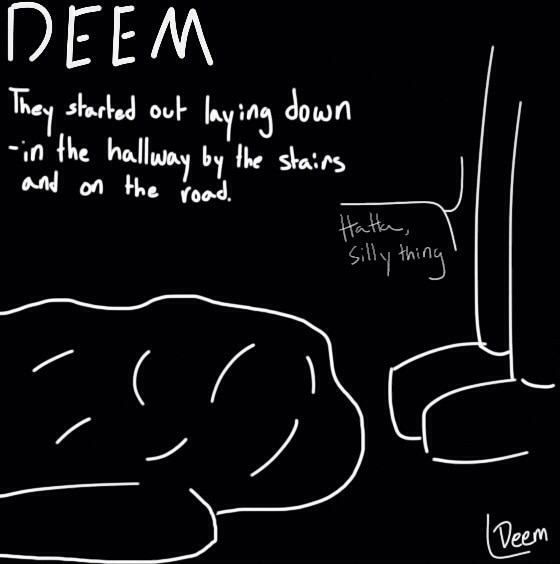 DEEM
They started out laying down
-in the hallway by the stairs
and on the road.
silly thing
Deem